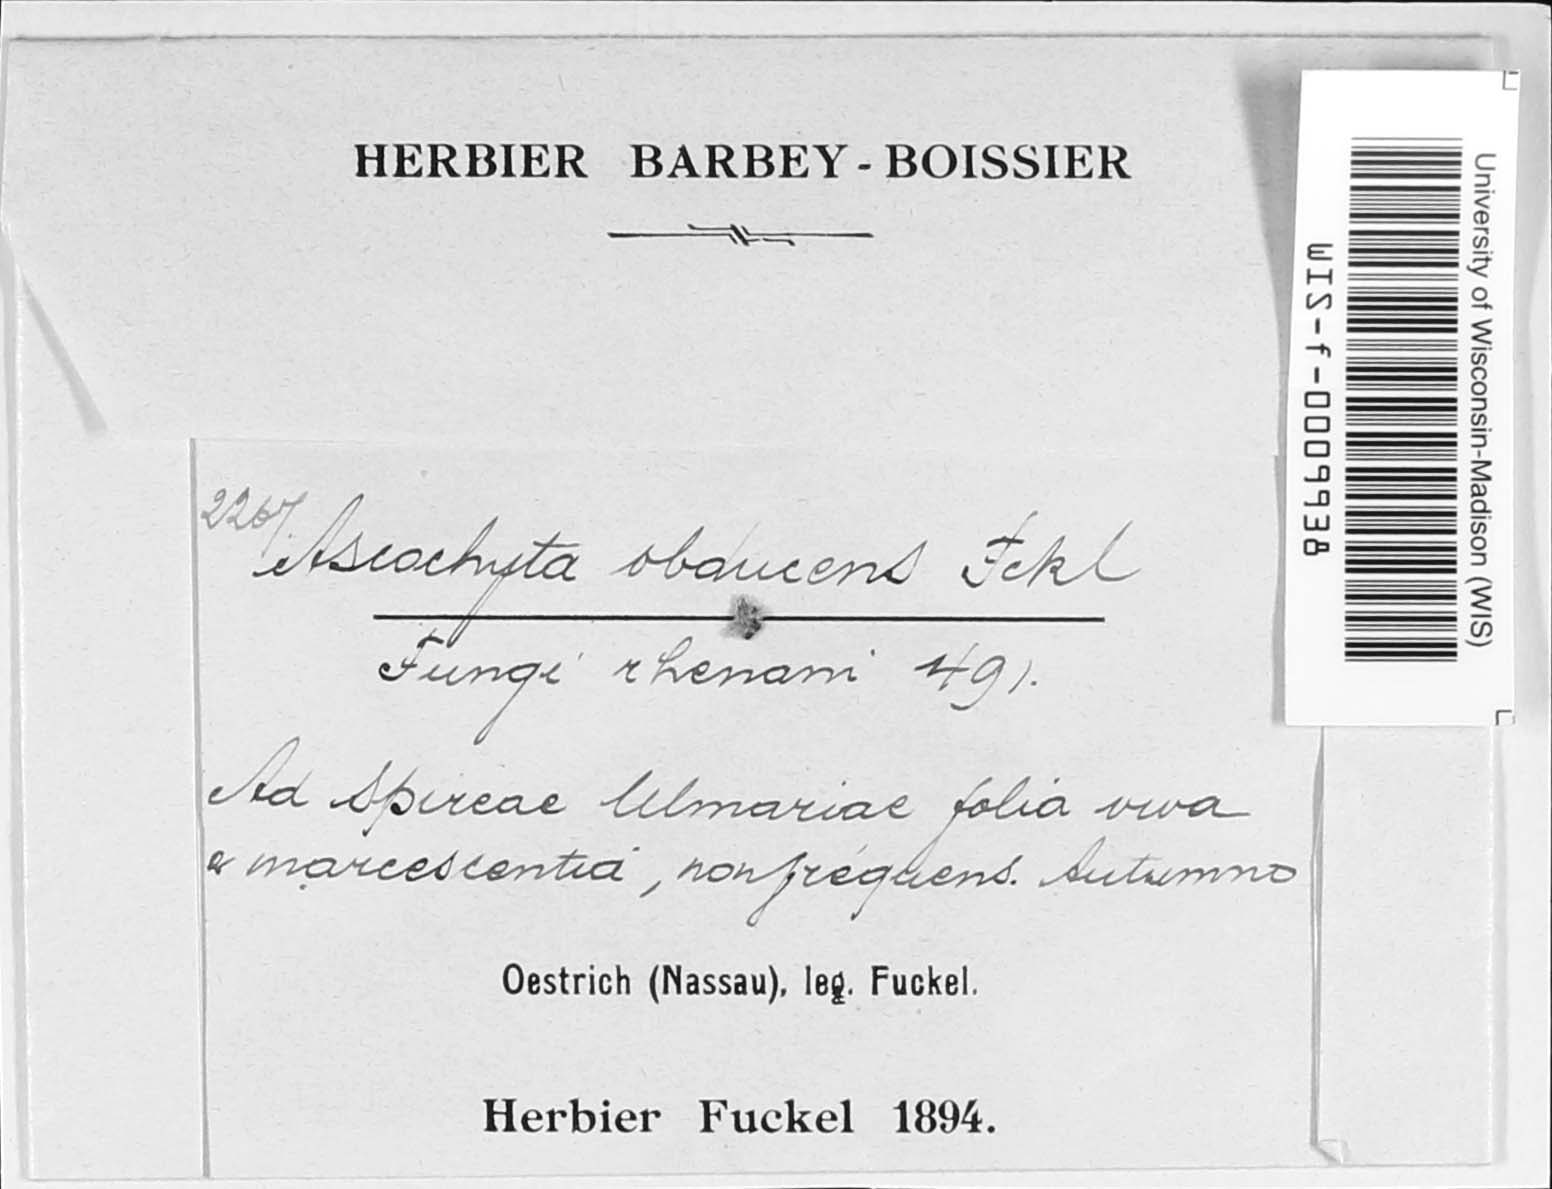 HERBIER BARBEY - BOISSIER
2267
Ascochyta obducens Fckl
Fungi rhenani 491.
Ad Spireae Ulmariae folia viva
& marcescentia, non frequens. Autumno
Oestrich (Nassau), leg. Fuckel.
Herbier Fuckel 1894.
University of Wisconsin-Madison (WIS)
WIS-f-0009938